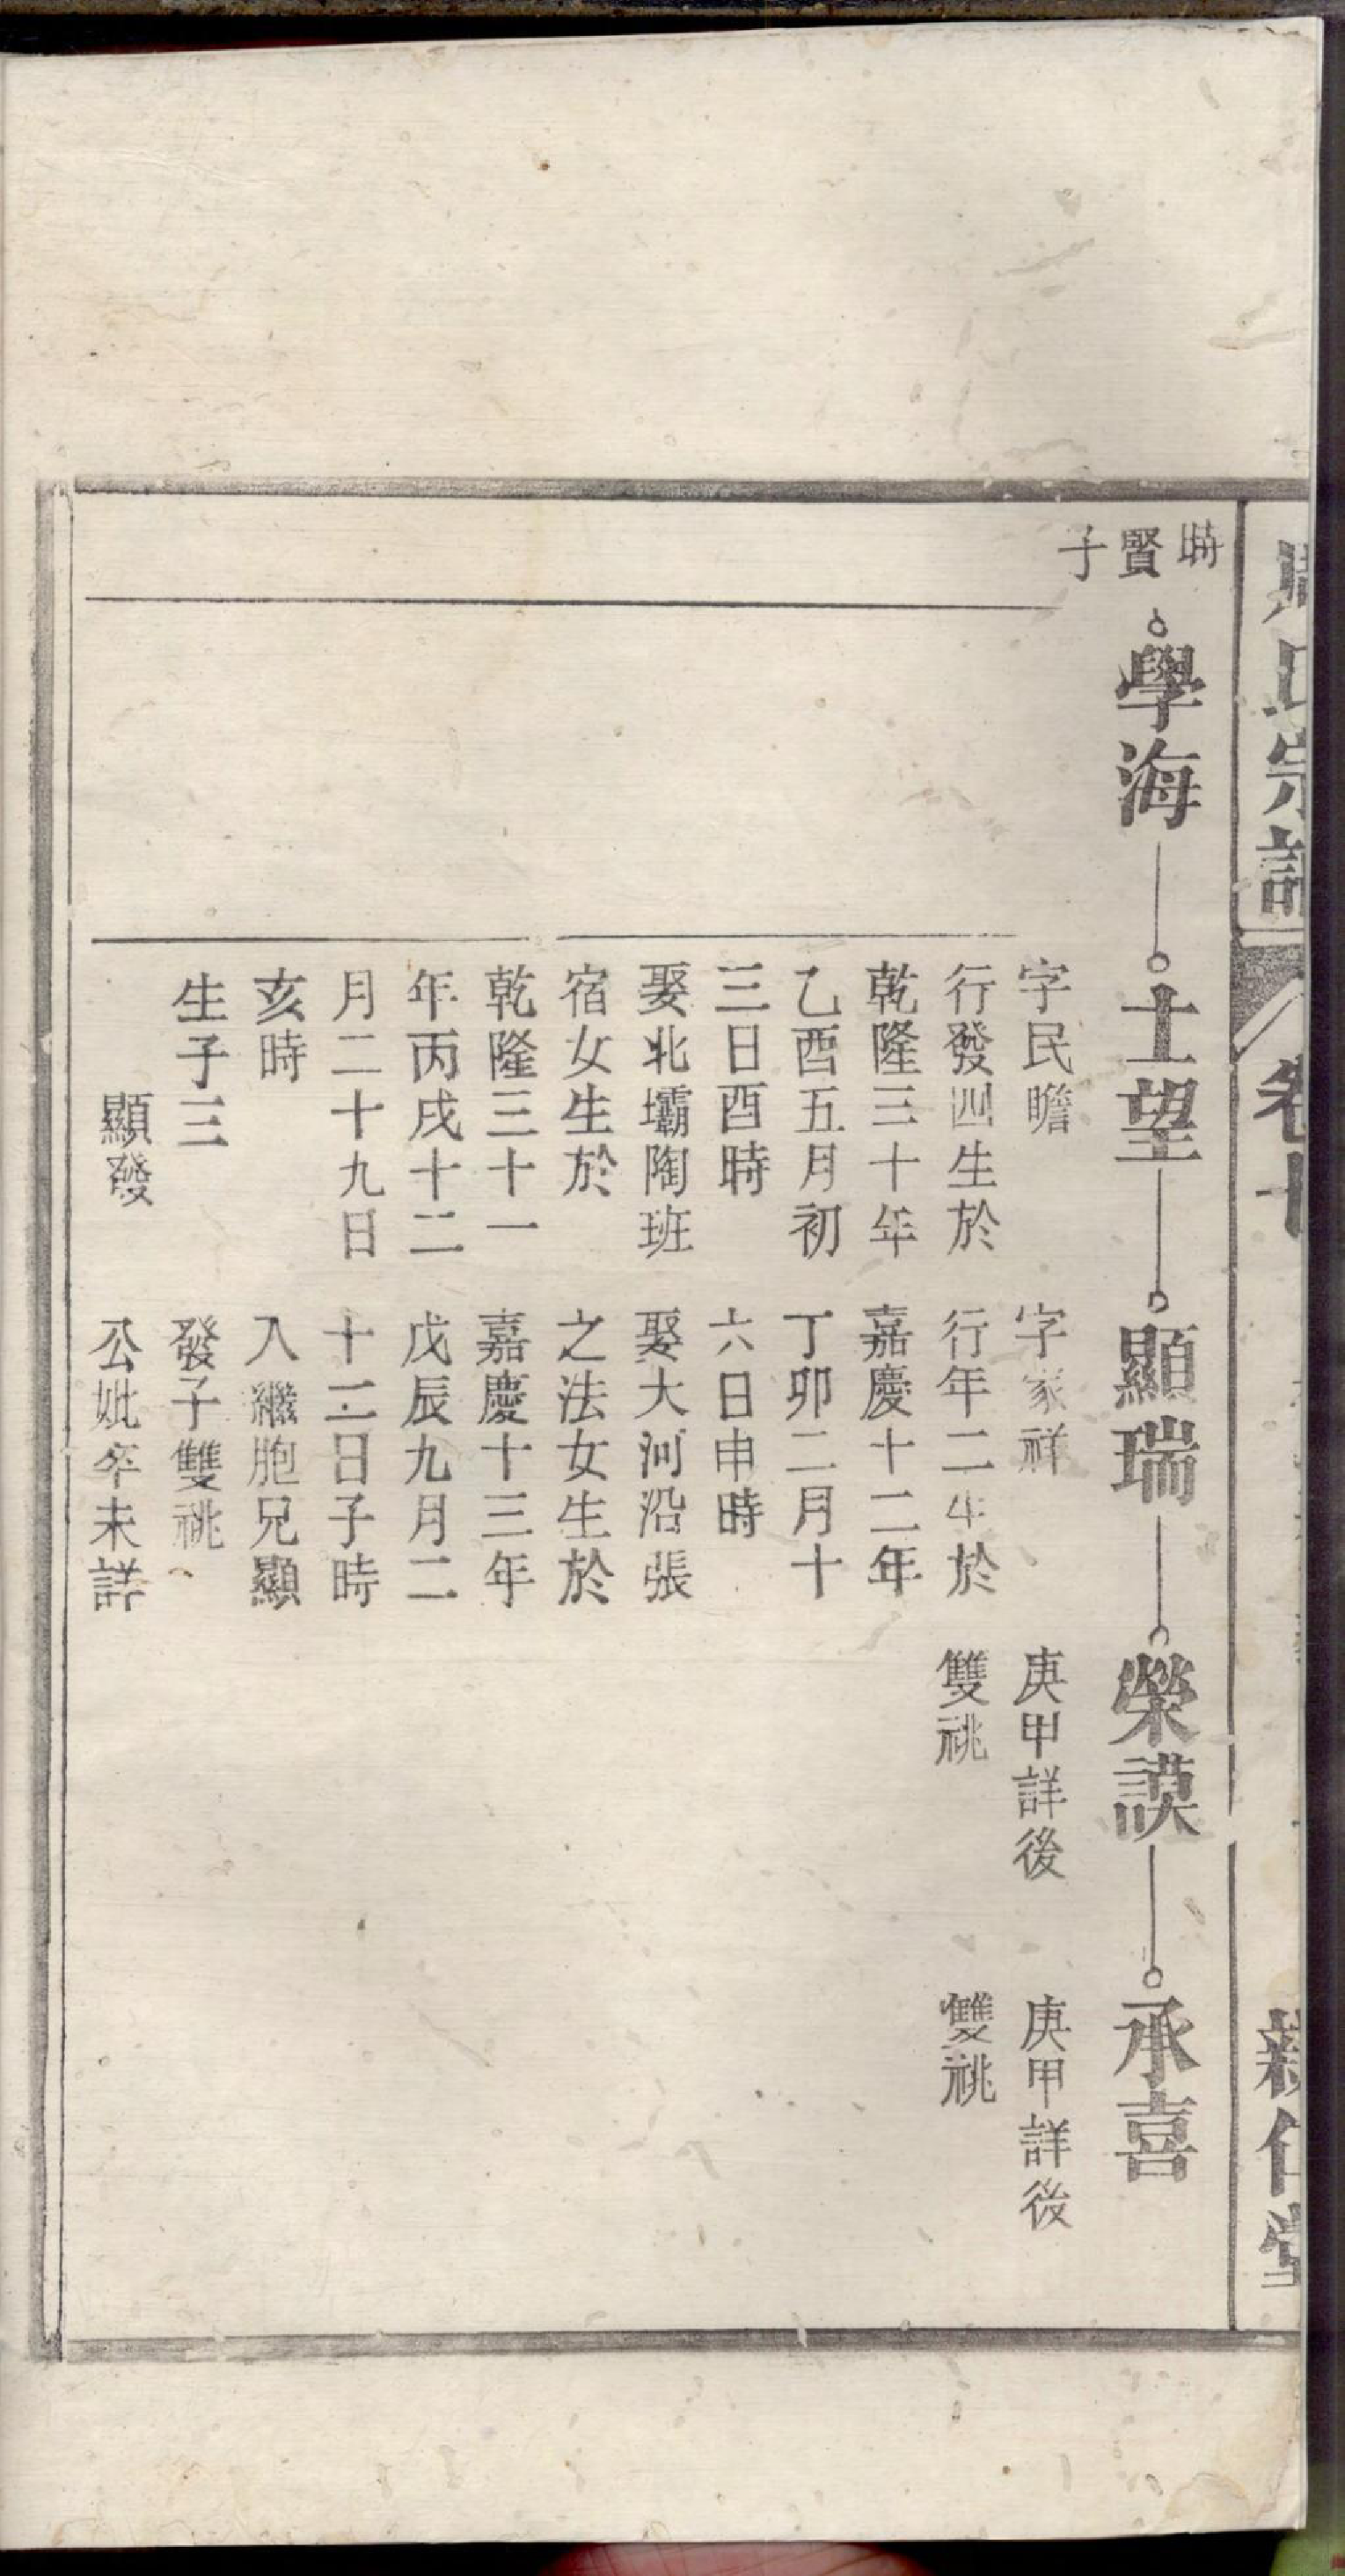 氏宗譜
卷十
親仁堂
時
賢
子
學海
士望
顯瑞
榮謨
承喜
字民瞻
行發四生於
乾隆三十年
乙酉五月初
三日酉時
娶北壩陶班
宿女生於
乾隆三十一
年丙戌十二
月二十九日
亥時
生子三
顯發
字家祥
行年二生於
嘉慶十二年
丁卯二月十
六日申時
娶大河沿張
之法女生於
嘉慶十三年
戊辰九月二
十二日子時
入繼胞兄顯
發子雙祧
公妣卒未詳
庚甲詳後
雙祧
庚甲詳後
雙祧